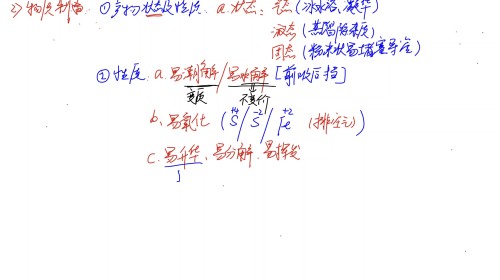 2> 物质制备 ① 产物状态及性质. a.状态: 气态(冰水浴、凝华)
液态(蒸馏除杂质)
固态(粉末状易堵塞导管)
② 性质. a.易潮解/易水解 [前吸后挡]
变质 不变价
b、易氧化 (S+4/S-2/Fe+2 (排空气)
c.易升华、易分解、易挥发